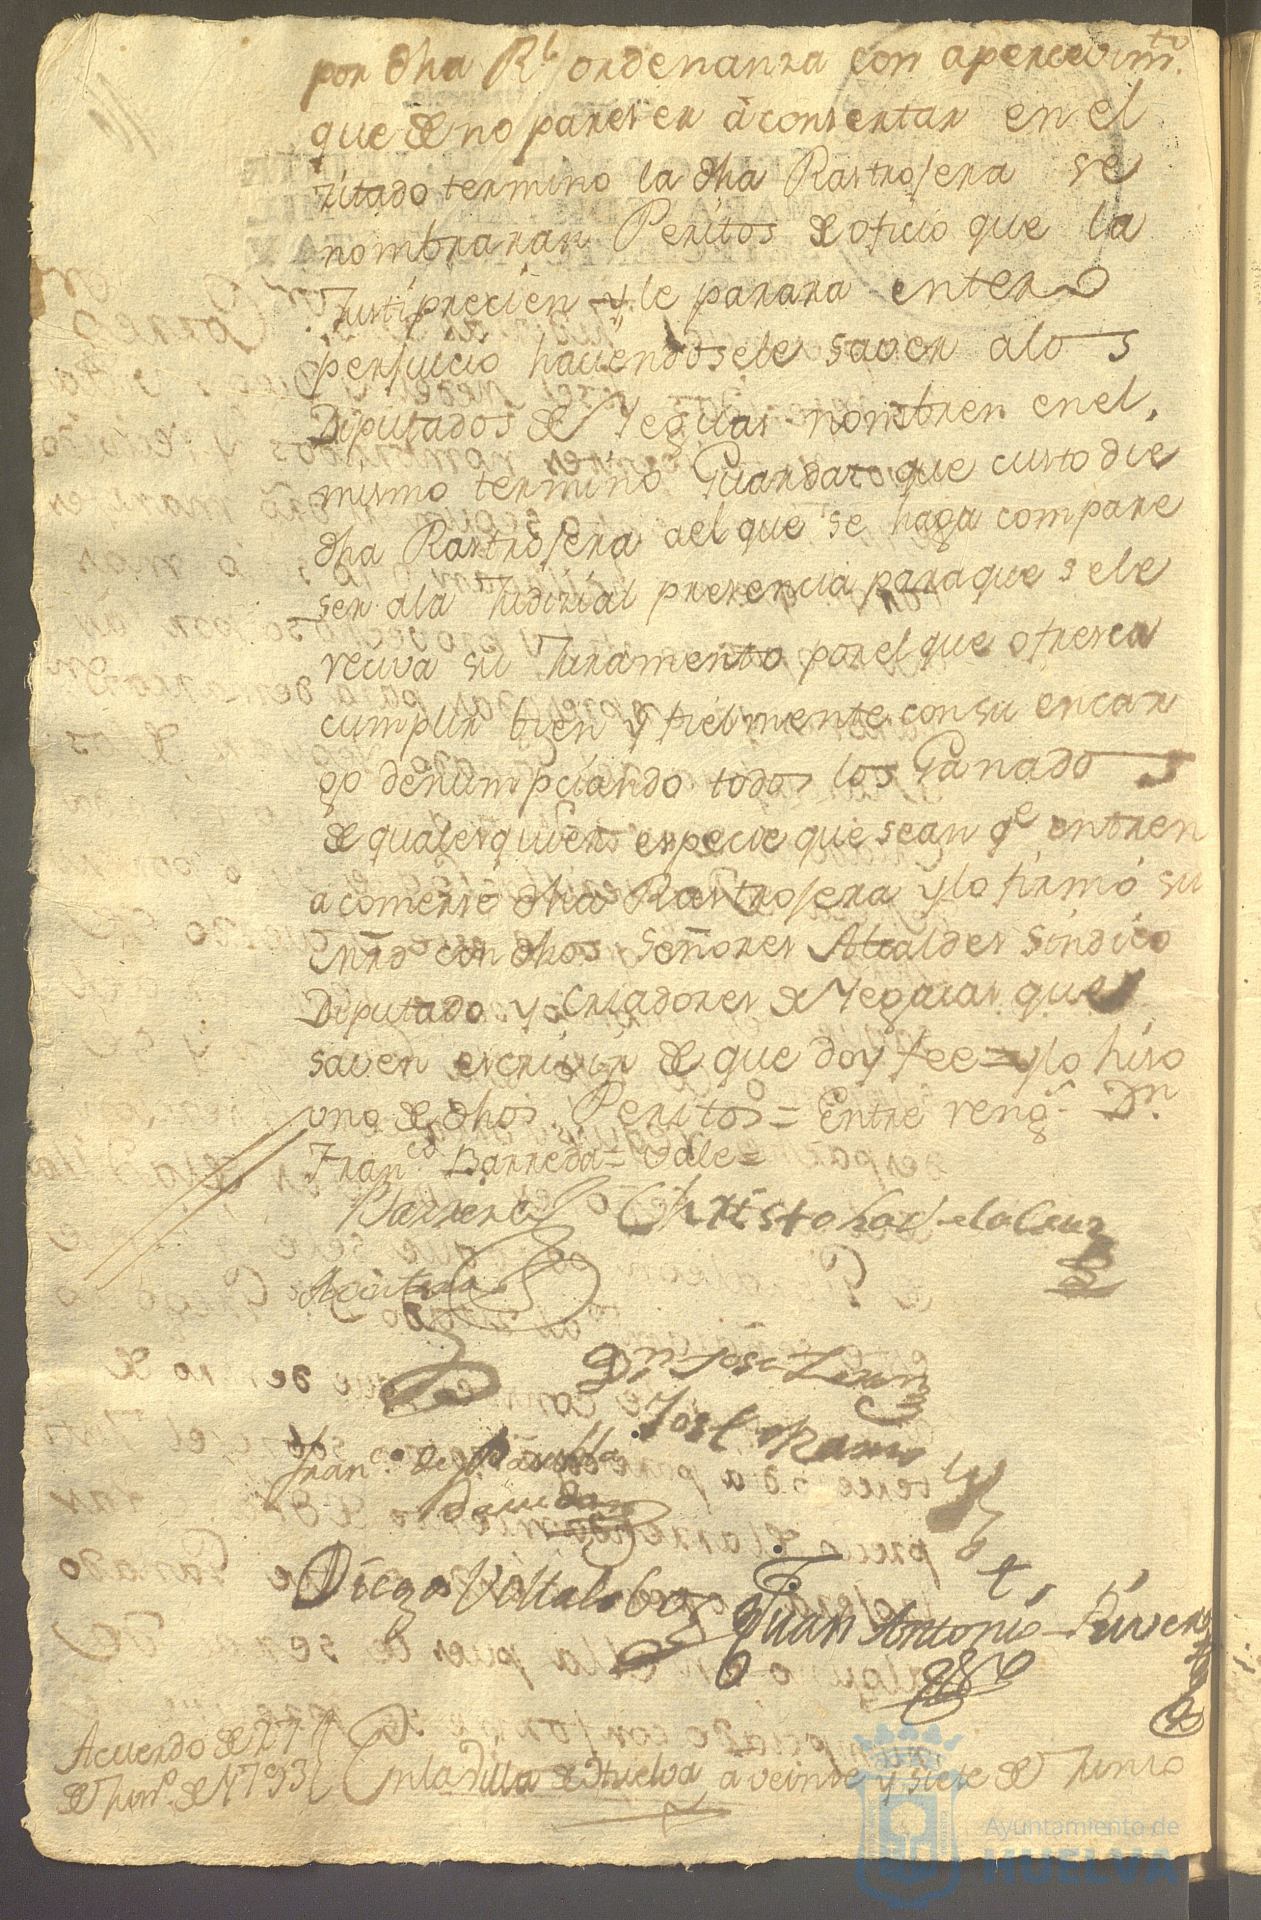 por dha Rl ordenanza con apercevimto.
que de no pareser en à consertar en el
zitado termino la dha Rastrojera se
nombraran Peritos de oficio que la
Justiprecien y le parara entero
perjuicio haciendosele saver alos
Diputados de Yeguas nombren en el
mismo termino Guardazo que custodie
dha Rastrojera a el que se haga compare
ser ala Judizial presencia para que sele
reciva su Juramento por el que ofresca
cumplir bien y fielmente con su encar
go denumpciando todos los Ganados
de qualesquiera especie que sean qe entren
a comerse dha Rastrojera y lo firmó su
con dhos Señores Alcaldes Sindico
Diputado y Criadores de Yeguas que
saven escrivir de que doy fee = y lo hiso
uno de dhos Peritos = Entre reng. Dn.
Franco Barreda = Vale =
Barrera Christobal de la Cruz
Dn Jose
Jose Ramos
Franco. de
Diego Villalobos
Juan Antonio Rivera
Acuerdo de 27
de Juno. de 1793
En la Villa de Huelva a veinte y siete de Junio
Ayuntamiento de
HUELVA